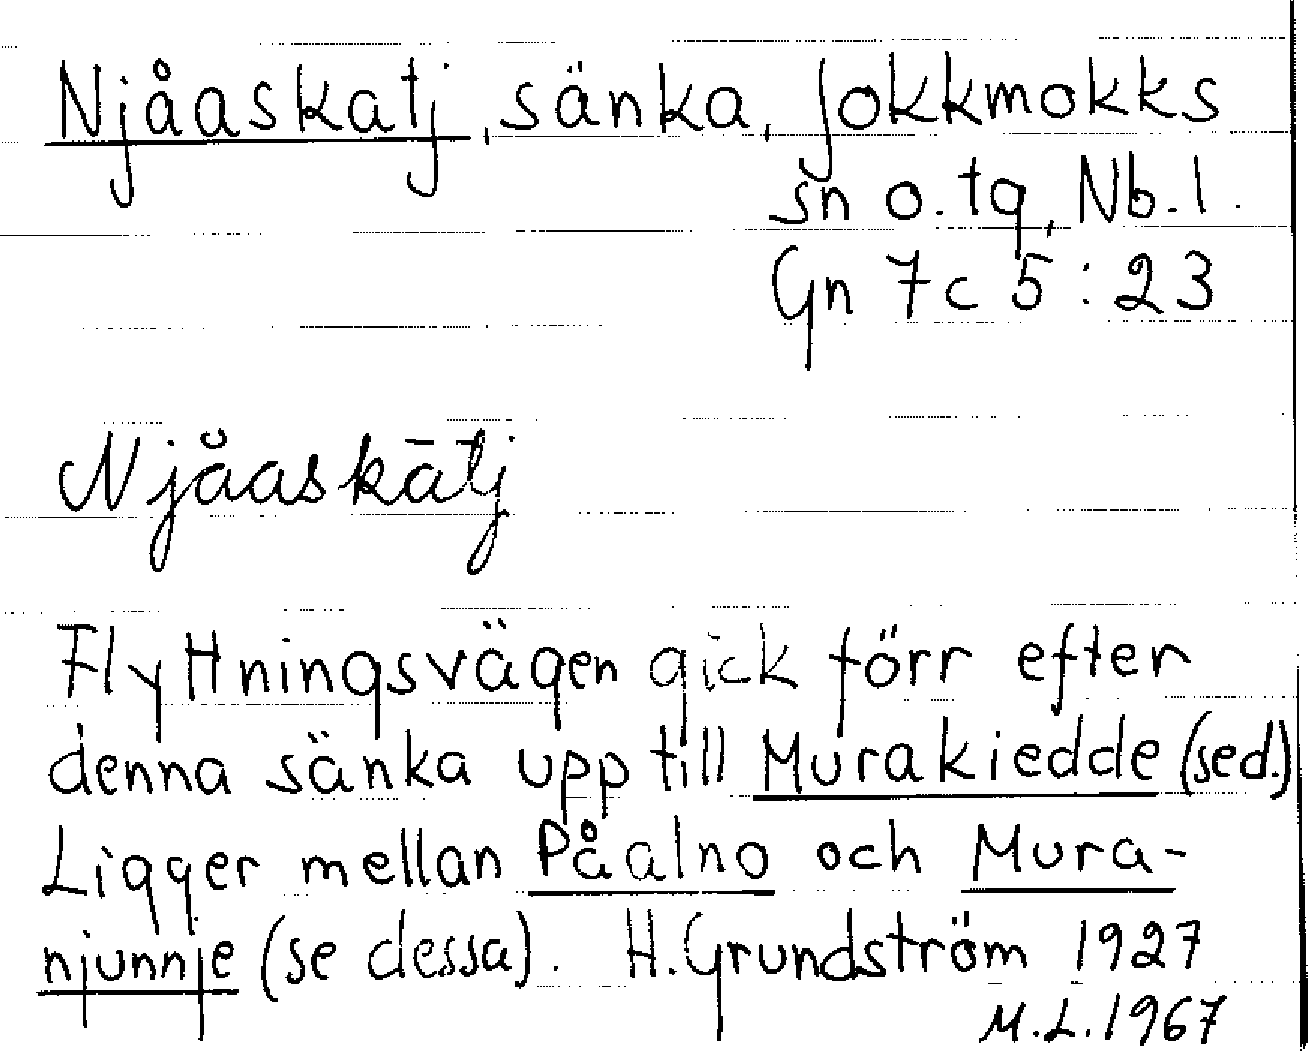 Njåaskatj, sänka, Jokkmokks
sn o. tg, Nb. l.
Gn 7c 5:23
Njåaskātj
Flyttningsvägen gick förr efter
denna sänka upp till Murakiedde (se d.)
Ligger mellan Påalno och Mura-
njunnje (se dessa). H. Grundström 1927
M.L. 1967